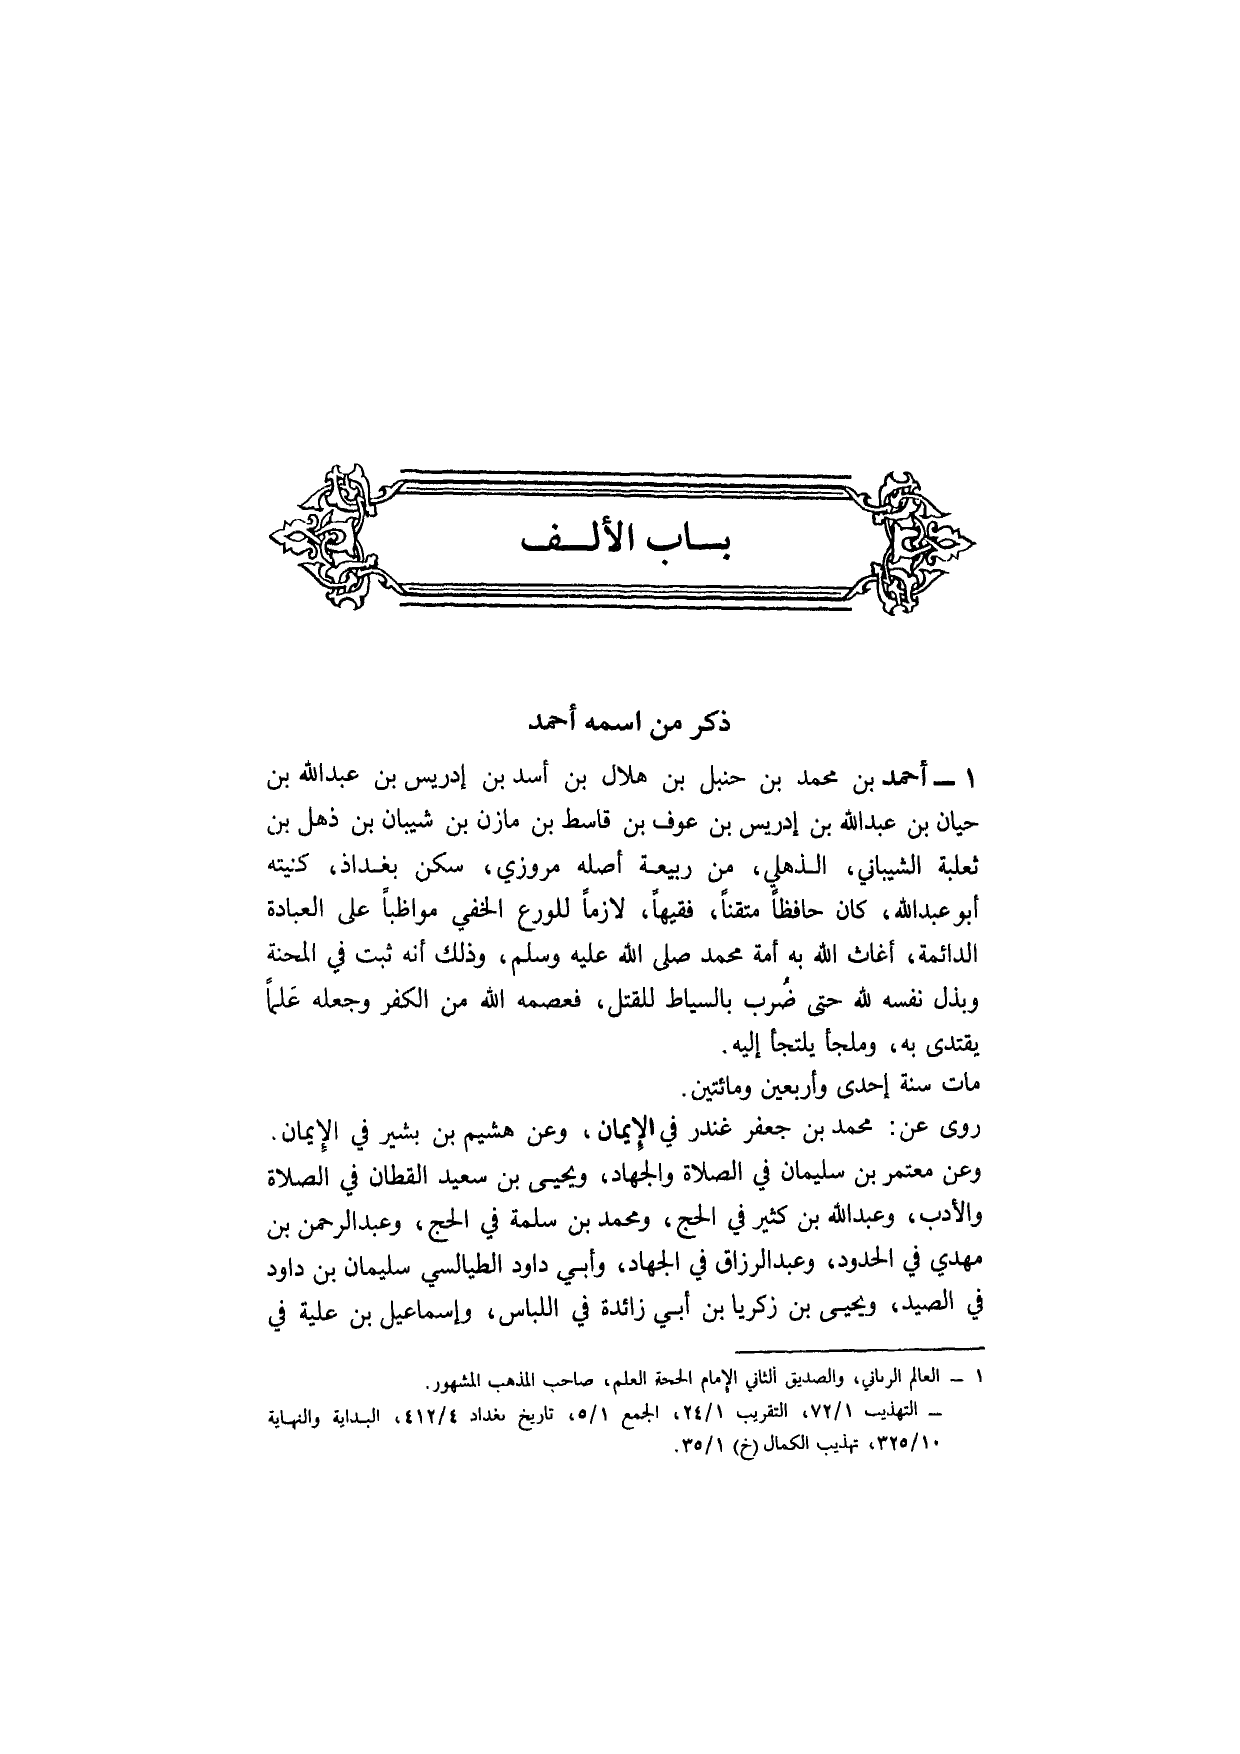 بــاب الألــف
ذكر من اسمه أحمد
١ ــ أحمد بن محمد بن حنبل بن هلال بن أسد بن إدريس بن عبدالله بن
حيان بن عبدالله بن إدريس بن عوف بن قاسط بن مازن بن شيبان بن ذهل بن
ثعلبة الشيباني، الـذهلي، من ربيعـة أصله مروزي، سكن بغـداذ، كنيته
أبو عبدالله، كان حافظاً متقناً، فقيهاً، لازماً للورع الخفي مواظباً على العبادة
الدائمة، أغاث الله به أمة محمد صلى الله عليه وسلم، وذلك أنه ثبت في المحنة
وبذل نفسه لله حتى ضُرب بالسياط للقتل، فعصمه الله من الكفر وجعله عَلماً
يقتدى به، وملجأ يلتجأ إليه.
مات سنة إحدى وأربعين ومائتين.
روى عن: محمد بن جعفر غندر في الإيمان، وعن هشيم بن بشير في الإيمان.
وعن معتمر بن سليمان في الصلاة والجهاد، ويحيـى بن سعيد القطان في الصلاة
والأدب، وعبدالله بن كثير في الحج، ومحمد بن سلمة في الحج، وعبدالرحمن بن
مهدي في الحدود، وعبدالرزاق في الجهاد، وأبـي داود الطيالسي سليمان بن داود
في الصيد، ويحيـى بن زكريا بن أبـي زائدة في اللباس، وإسماعيل بن علية في
١ ــ العالم الرباني، والصديق الثاني الإمام الحجة العلم، صاحب المذهب المشهور.
ــ التهذيب ٧٢/١، التقريب ٢٤/١، الجمع ٥/١، تاريخ بغداد ٤١٢/٤، البـداية والنهـاية
٣٢٥/١٠، تهذيب الكمال (خ) ٣٥/١.